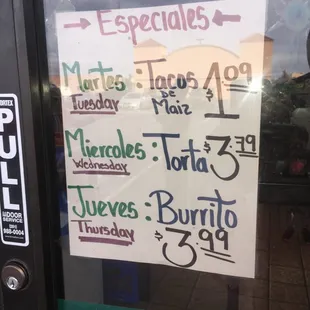 → Especiales ←
Martes : Tacos $1.09
Tuesday DE Maiz
Miercoles : Torta $3.79
Wednesday
Jueves : Burrito
Thursday $3.99
PULL
INDOOR
SERVICE